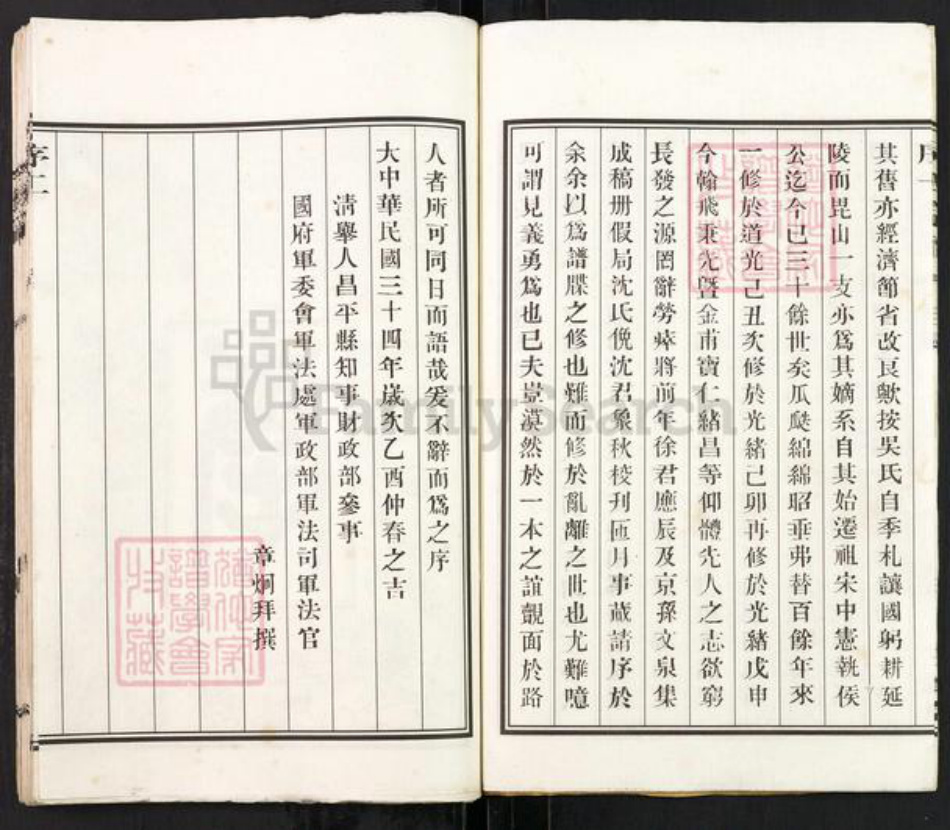 其舊亦經濟節省改良歟按吳氏自季札讓國躬耕延
陵而毘山一支亦爲其嫡系自其始遷祖宋中憲執侯
公迄今已三十餘世矣瓜瓞綿綿昭垂弗替百餘年來
一修於道光己丑次修於光緒己卯再修於光緒戊申
今翰飛秉先曁金甫寶仁緒昌等仰體先人之志欲窮
長發之源罔辭勞瘁將前年徐君應辰及京孫文泉集
成稿册假局沈氏俛沈君象秋校刊匝月事蕆請序於
余余以爲譜牒之修也難而修於亂離之世也尤難噫
可謂見義勇爲也已夫豈漠然於一本之誼覿面於路
人者所可同日而語哉爰不辭而爲之序
大中華民國三十四年歲次乙酉仲春之吉
清舉人昌平縣知事財政部參事
國府軍委會軍法處軍政部軍法司軍法官
章炯拜撰
序二
FamilySearch